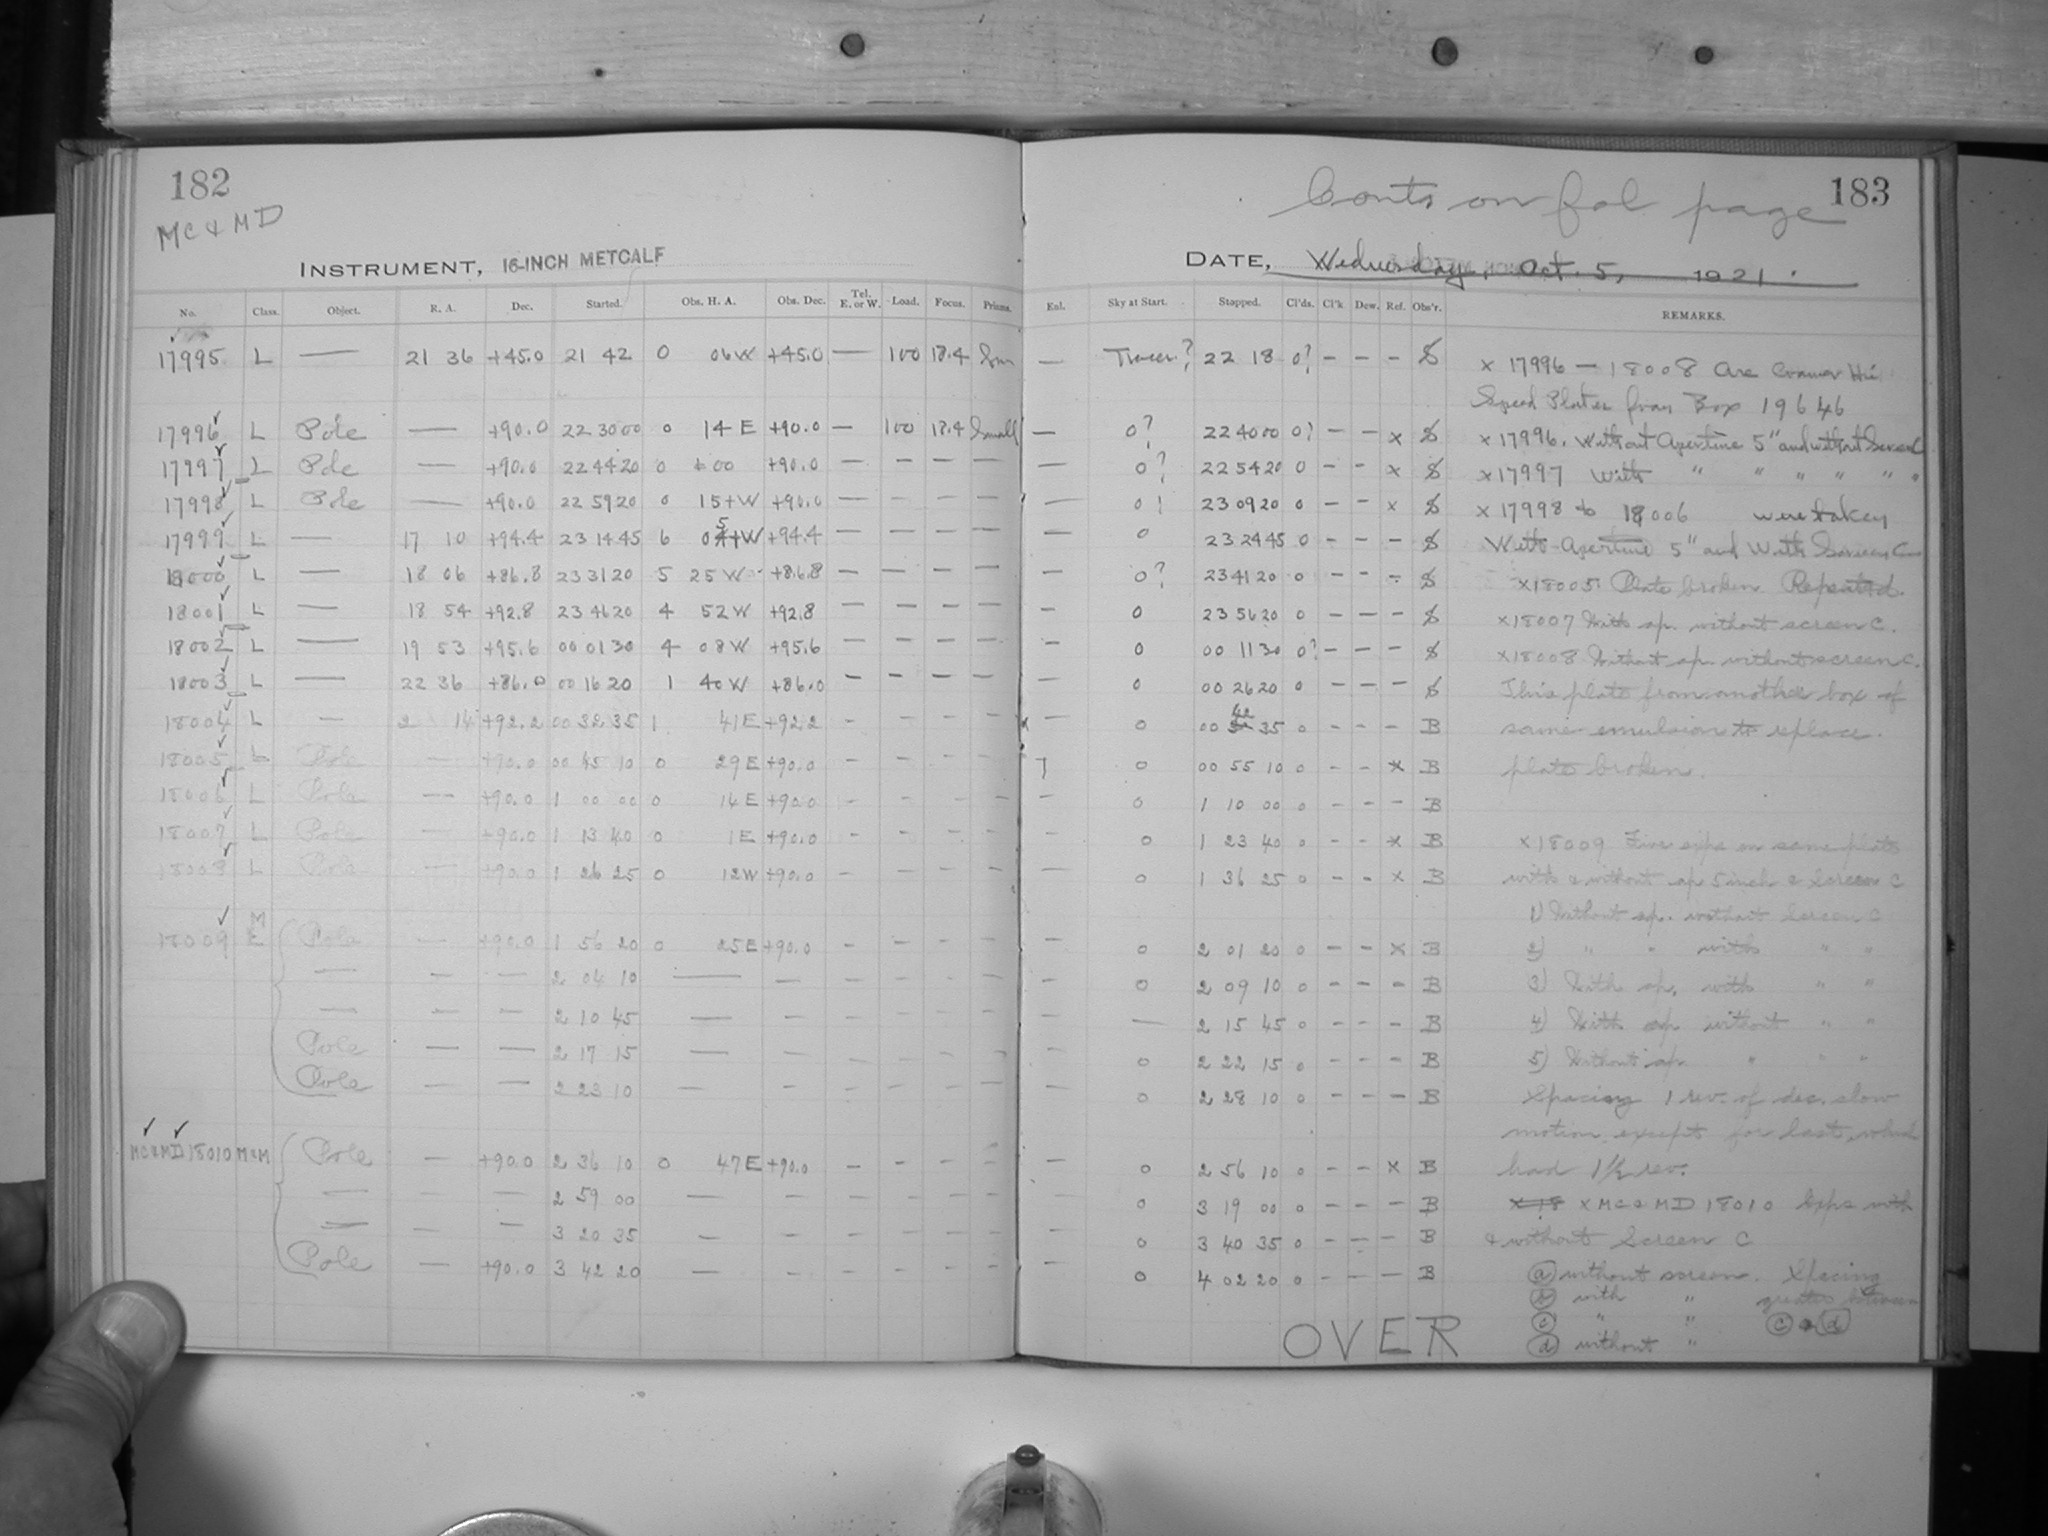 182
MC & MD
INSTRUMENT, 16-INCH METCALF
No. Class. Object. R. A. Dec. Started. Obs. H. A. Obs. Dec. Tel. E. or W. Load. Focus. Prisms.
17995 L — 21 36 +45.0 21 42 0 06 W +45.0 — 100 17.4
17996 L Pole — +90.0 22 30 00 0 14 E +90.0 — 100 17.4 Small
17997 L Pole — +90.0 22 44 20 0 00 +90.0 — — — —
17998 L Pole — +90.0 22 59 20 0 15+W +90.0 — — — —
17999 L — 17 10 +94.4 23 14 45 6 05+W +94.4 — — — —
18000 L — 18 06 +86.8 23 31 20 5 25 W +86.8 — — — —
18001 L — 18 54 +92.8 23 46 20 4 52 W +92.8 — — — —
18002 L — 19 53 +95.6 00 01 30 4 08 W +95.6 — — — —
18003 L — 22 36 +86.0 00 16 20 1 40 W +86.0 — — — —
18004 L — 2 14 +92.2 00 32 35 1 41 E +92.2 - - - -
18005 L Pole — +90.0 00 45 10 0 29 E +90.0 - - - -
18006 L Pole — +90.0 1 00 00 0 14 E +90.0 - - - -
18007 L Pole — +90.0 1 13 40 0 1 E +90.0 - - - -
18008 L Pole — +90.0 1 26 25 0 12 W +90.0 - - - -
18009 M Pole — +90.0 1 56 20 0 25 E +90.0 - - - -
— — — 2 04 10 — - - - - -
— — — 2 10 45 — - - - - -
Pole — — 2 17 15 — - - - - -
Pole — — 2 23 10 — - - - - -
MC & MD 18010 M & M Pole — +90.0 2 36 10 0 47 E +90.0 - - - -
— — — 2 59 00 — - - - - -
— — — 3 20 35 — - - - - -
Pole — +90.0 3 42 20 — - - - - -
Conts on fol page 183
DATE, Wednesday, Oct. 5, 1921.
Enl. Sky at Start. Stopped. Cl'ds. Cl'k Dew. Ref. Obs'r. REMARKS.
— ? 22 18 0? - - - S
— 0? 22 40 00 0? - - x S
— 0? 22 54 20 0 - - x S
— 0! 23 09 20 0 - - x S
— 0 23 24 45 0 - - - S
— 0? 23 41 20 0 - - - S
— 0 23 56 20 0 - - - S
— 0 00 11 30 0? - - - S
— 0 00 26 20 0 - - - S
— 0 00 42 35 0 - - - B
0 00 55 10 0 - - x B
— 0 1 10 00 0 - - - B
— 0 1 23 40 0 - - x B
— 0 1 36 25 0 - - x B
— 0 2 01 20 0 - - x B
— 0 2 09 10 0 - - - B
— — 2 15 45 0 - - - B
— 0 2 22 15 0 - - - B
— 0 2 28 10 0 - - - B
— 0 2 56 10 0 - - x B
— 0 3 19 00 0 - - - B
— 0 3 40 35 0 - - - B
— 0 4 02 20 0 - - - B
x 17996 — 18008 Are Cramer Hi
Speed Plates from Box 19646
x 17996. Without Aperture 5" and without Screen C
x 17997 With " " " " " "
x 17998 to 18006 were taken
With Aperture 5" and With Screen C
x 18005 Plate broken. Repeated.
x 18007 With ap. without screen C.
x 18008 Without ap. without screen C.
This plate from another box of
same emulsion to replace
plate broken.
x 18009 Five exps on same plate
with & without ap 5 inch & Screen C
1) Without ap. without Screen C
2) " " with " "
3) With ap. with " "
4) With ap. without " "
5) Without ap. " " "
Spacing 1 rev. of dec. slow
motion except for last, which
had 1½ rev.
x 18 x MC & MD 18010 Exps with
& without Screen C
(a) without screen. Spacing
(b) with " greater between
(c) " " (c) & (d)
(d) without "
OVER